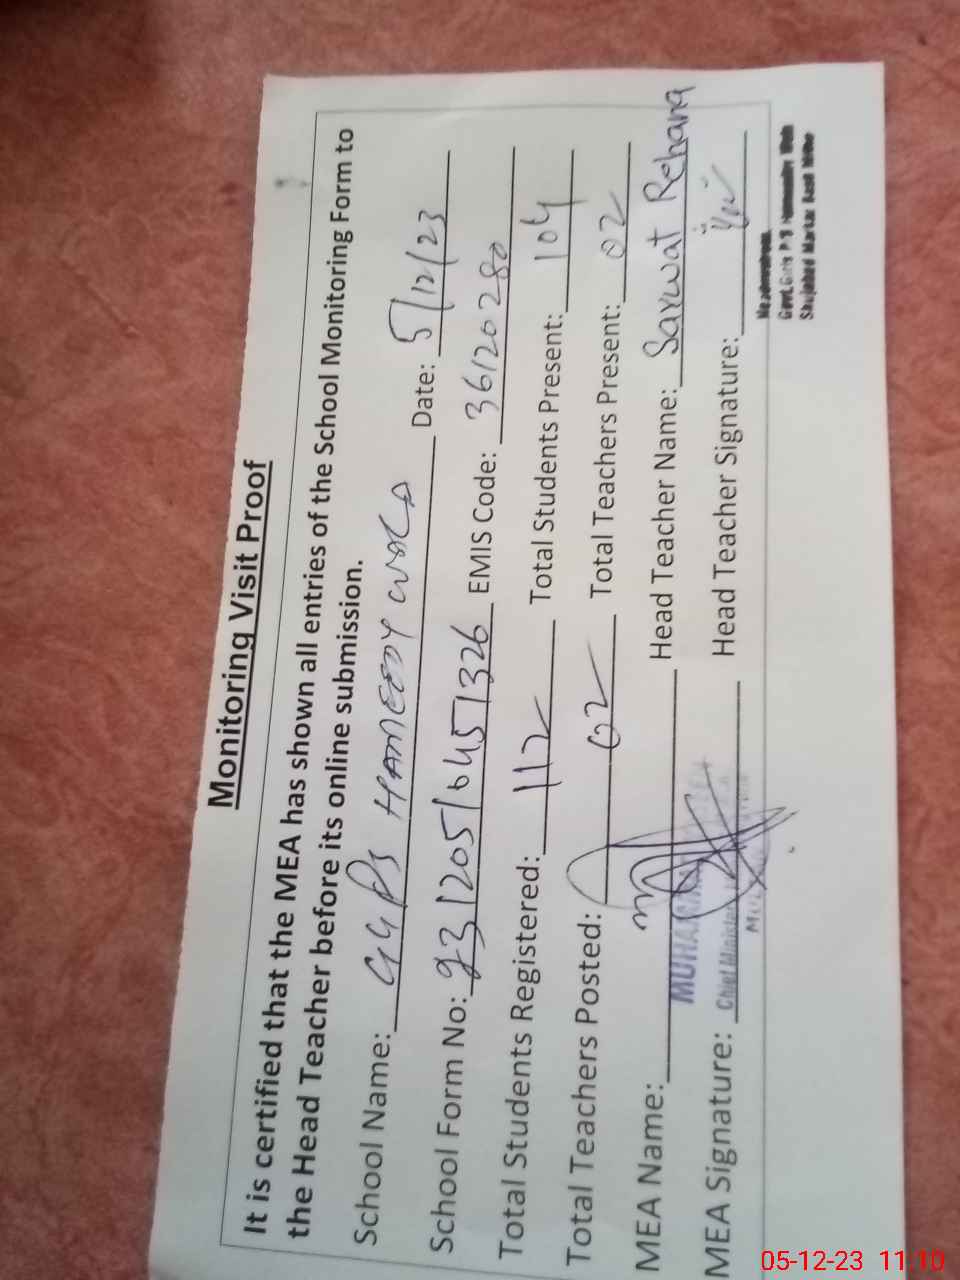 Monitoring Visit Proof
It is certified that the MEA has shown all entries of the School Monitoring Form to
the Head Teacher before its online submission.
School Name: GGPS HAMEEDY WALA Date: 5/12/23
School Form No: 231205/645/326 EMIS Code: 36120280
Total Students Registered: 112 Total Students Present: 104
Total Teachers Posted: 02 Total Teachers Present: 02
MEA Name: Head Teacher Name: Sarwat Rehana
MUHAMMAD
MEA Signature: Head Teacher Signature:
Chief Minister
Headmistress
Govt. Girls P/S
Shujabad Markaz
05-12-23 11:10